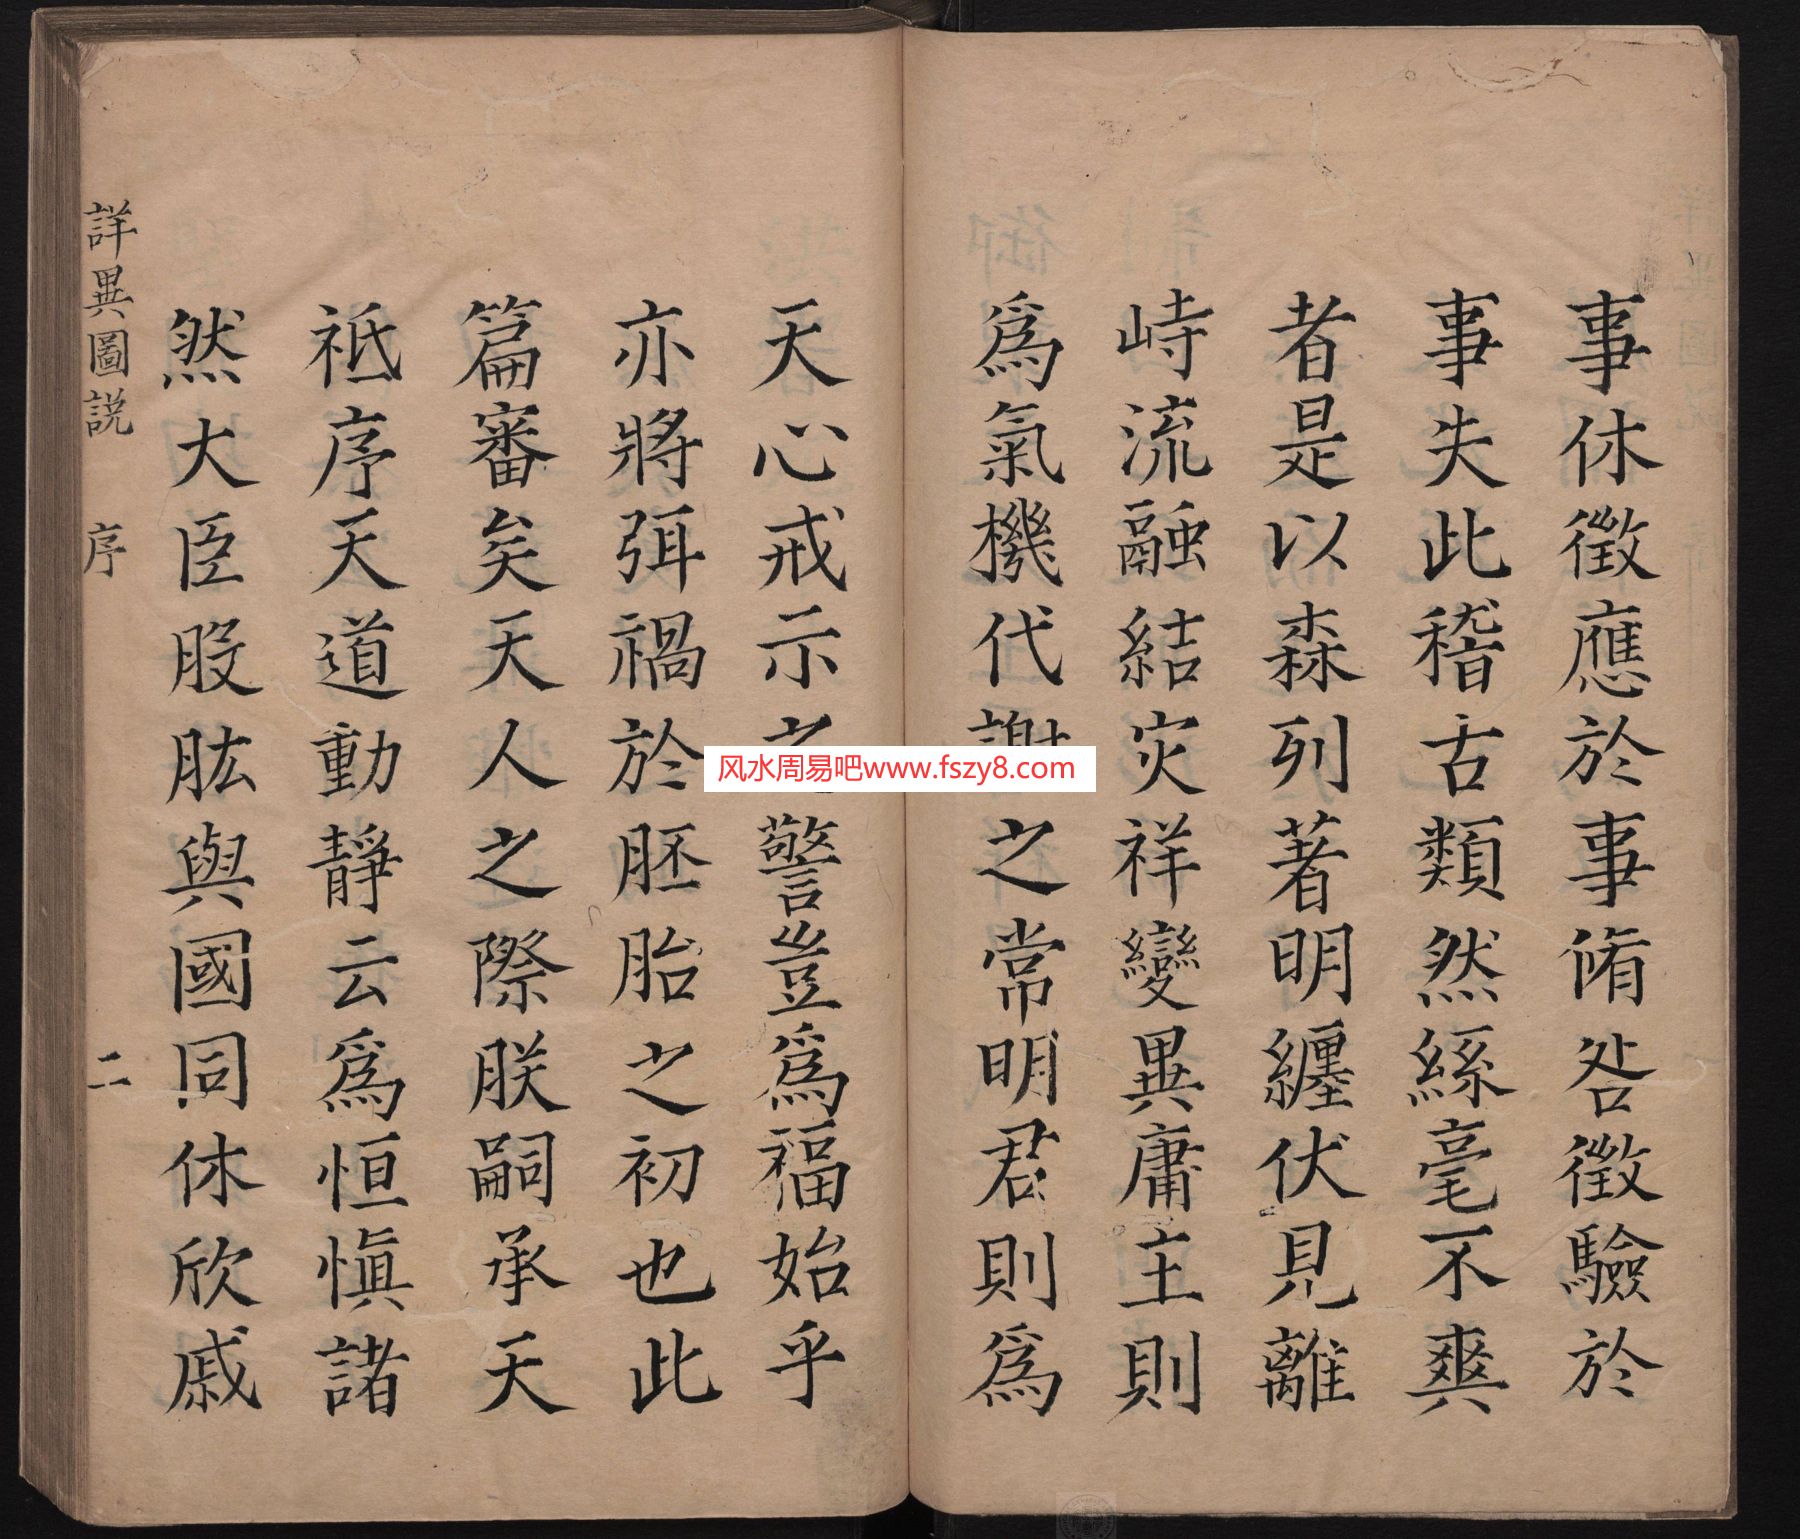 事休徵應於事脩咎徵驗於
事失此稽古類然絲毫不爽
者是以森列著明纏伏見離
峙流融結灾祥變異庸主則
為氣機代謝之常明君則為
天心戒示之警豈為福始乎
亦將弭禍於胚胎之初也此
篇審矣天人之際朕嗣承天
祗序天道動靜云為恒慎諸
然大臣股肱與國同休欣戚
詳異圖説 序 二
风水周易吧www.fszy8.com